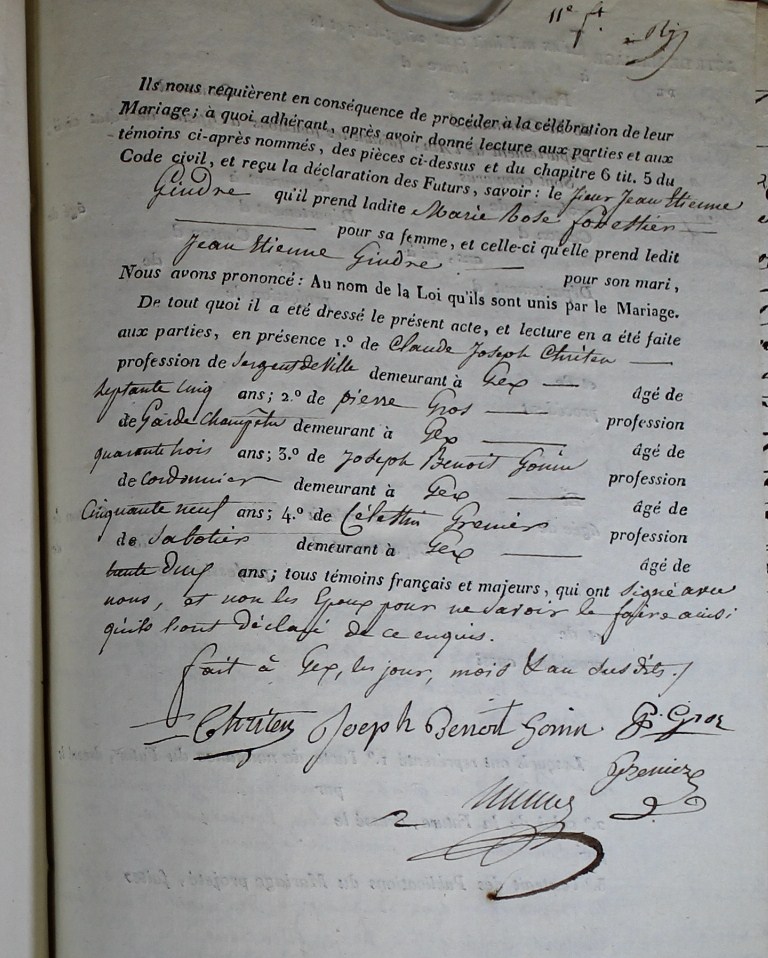 11e f.t
Ils nous requièrent en conséquence de procéder à la célébration de leur
Mariage; à quoi adhérant, après avoir donné lecture aux parties et aux
témoins ci-après nommés, des pièces ci-dessus et du chapitre 6 tit. 5 du
Code civil, et reçu la déclaration des Futurs, savoir: le sieur Jean Etienne
Gindre qu'il prend ladite Marie Rose forestier
pour sa femme, et celle-ci qu'elle prend ledit
Jean Etienne Gindre pour son mari,
Nous avons prononcé: Au nom de la Loi qu'ils sont unis par le Mariage.
De tout quoi il a été dressé le présent acte, et lecture en a été faite
aux parties, en présence 1.º de Claude Joseph Chriten
profession de Sergent de Ville demeurant à Gex âgé de
septante cinq ans; 2.º de pierre Gros profession
de Garde Champêtre demeurant à Gex âgé de
quarante trois ans; 3.º de Joseph Benoit Gonin profession
de Cordonnier demeurant à Gex âgé de
Cinquante neuf ans; 4.º de Célestin Grenier profession
de Sabotier demeurant à Gex âgé de
ans; tous témoins français et majeurs, qui ont signé avec
nous, et non les Epoux pour ne savoir le faire ainsi
qu'ils l'ont déclaré de ce enquis.
fait à Gex, les jour, mois & an susdits.
Chriten Joseph Benoit Gonin P. Gros
Grenier